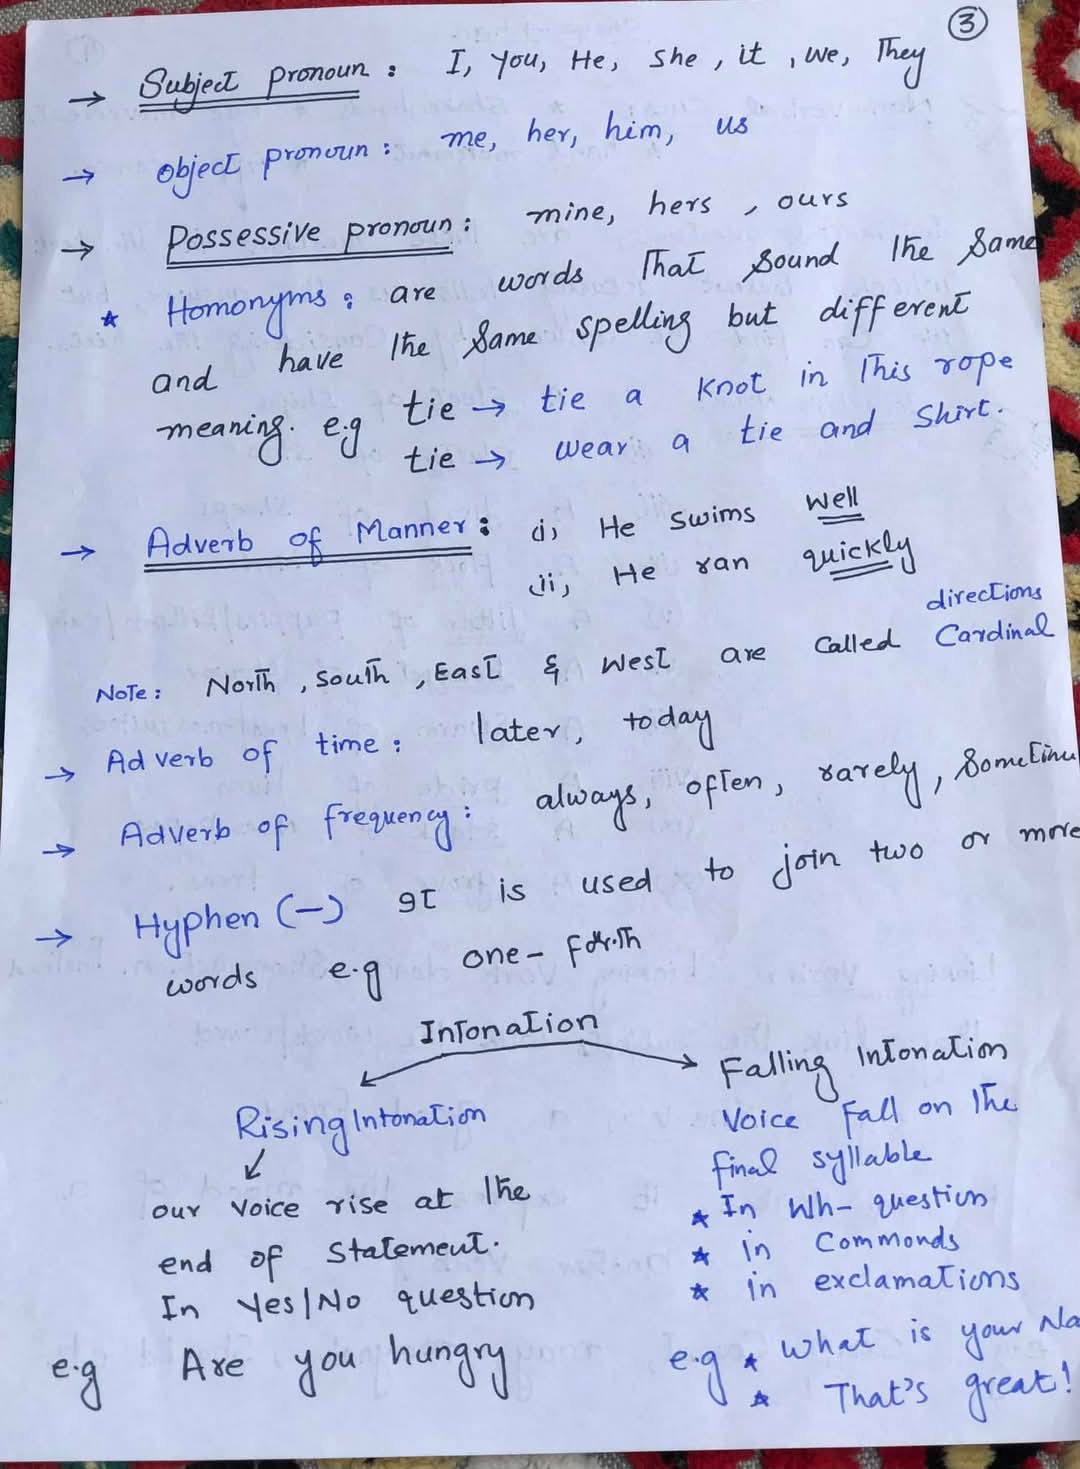 3
→ Subject pronoun : I, you, He, she, it, we, They
→ object pronoun : me, her, him, us
→ Possessive pronoun : mine, hers, ours
* Homonyms : are words That sound The Same
and have The Same spelling but different
meaning. e.g tie → tie a Knot in This rope
tie → wear a tie and Shirt.
→ Adverb of Manner : i, He swims well
ii, He ran quickly
directions
Note : North, South, East & West are called Cardinal
→ Adverb of time : later, today
→ Adverb of frequency : always, often, rarely, Sometime
→ Hyphen (-) It is used to join two or more
words e.g one-
Intonation
Rising Intonation
our voice rise at The
end of Statement.
In Yes/No question
e.g Are you hungry
Falling Intonation
Voice fall on The
final syllable
* In Wh- question
* in Commonds
* in exclamations
e.g * What is your Na
* That's great!